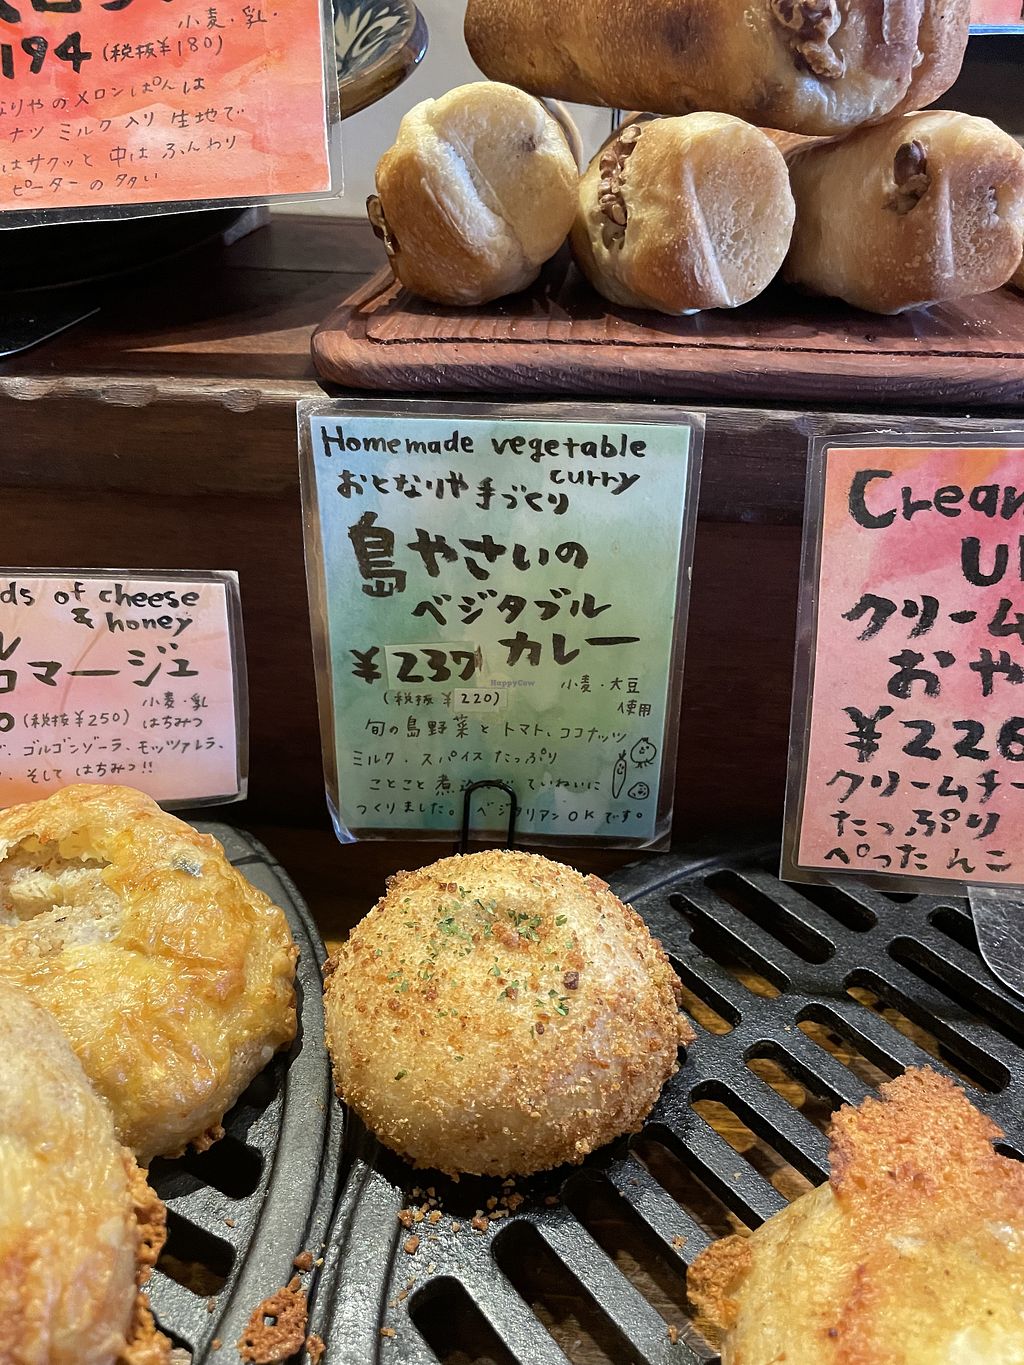 194 (税抜¥180)
小麦・乳・
なりやのメロンぱんは
ナツミルク入り生地で
はサクッと中はふんわり
ピーターの多い
Homemade vegetable
curry
おとなりや手づくり
島やさいの
ベジタブル
カレー
¥237
(税抜¥220)
小麦・大豆
使用
HappyCow
旬の島野菜とトマト、ココナッツ
ミルク、スパイスたっぷり
ことこと煮込んでていねいに
つくりました。ベジタリアンOKです。
ds of cheese
& honey
ル
コマージュ
0(税抜¥250)
小麦・乳
はちみつ
ゴルゴンゾーラ、モッツァレラ、
、そしてはちみつ!!
Crea
クリーム
おや
¥226
クリームチー
たっぷり
ぺったんこ